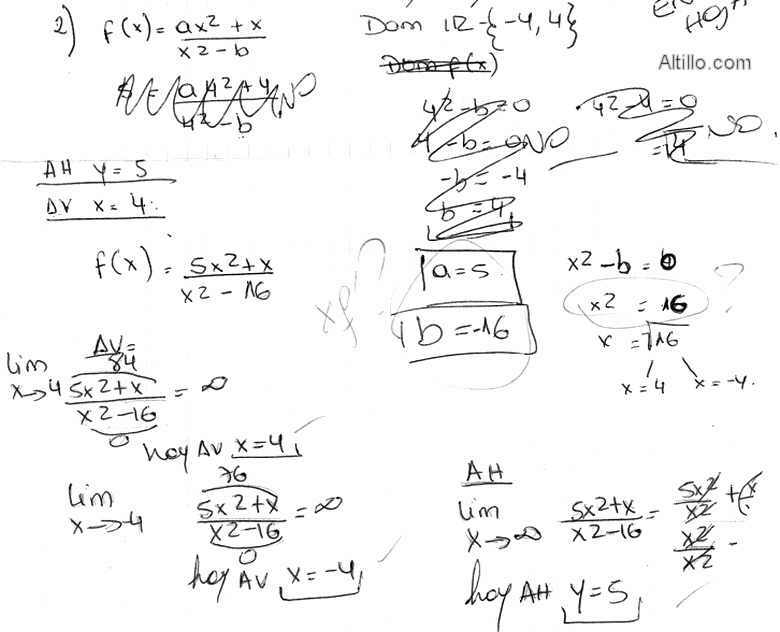 2) f(x) = ax2 + x / x2 - b    Dom IR - {-4, 4}
Altillo.com
Dom f(x)
a 42 + 4 / 42 - b NO
42 - b = 0
4 - b = 0 NO
-b = -4
b = 4
42 - 4 = 0
= 14 NO
AH y = 5
AV x = 4
f(x) = 5x2 + x / x2 - 16
xq'?
a = 5
b = -16
x2 - b = 0
x2 = 16 ?
x = √16
x = 4   x = -4
AV =
84
lim x→4 5x2 + x / x2 - 16 = ∞
0
hay AV x = 4
76
lim x→-4 5x2 + x / x2 - 16 = ∞
0
hay AV x = -4
AH
lim x→∞ 5x2 + x / x2 - 16 = 5x2 / x2 + x / x2 / x2 -
hay AH y = 5